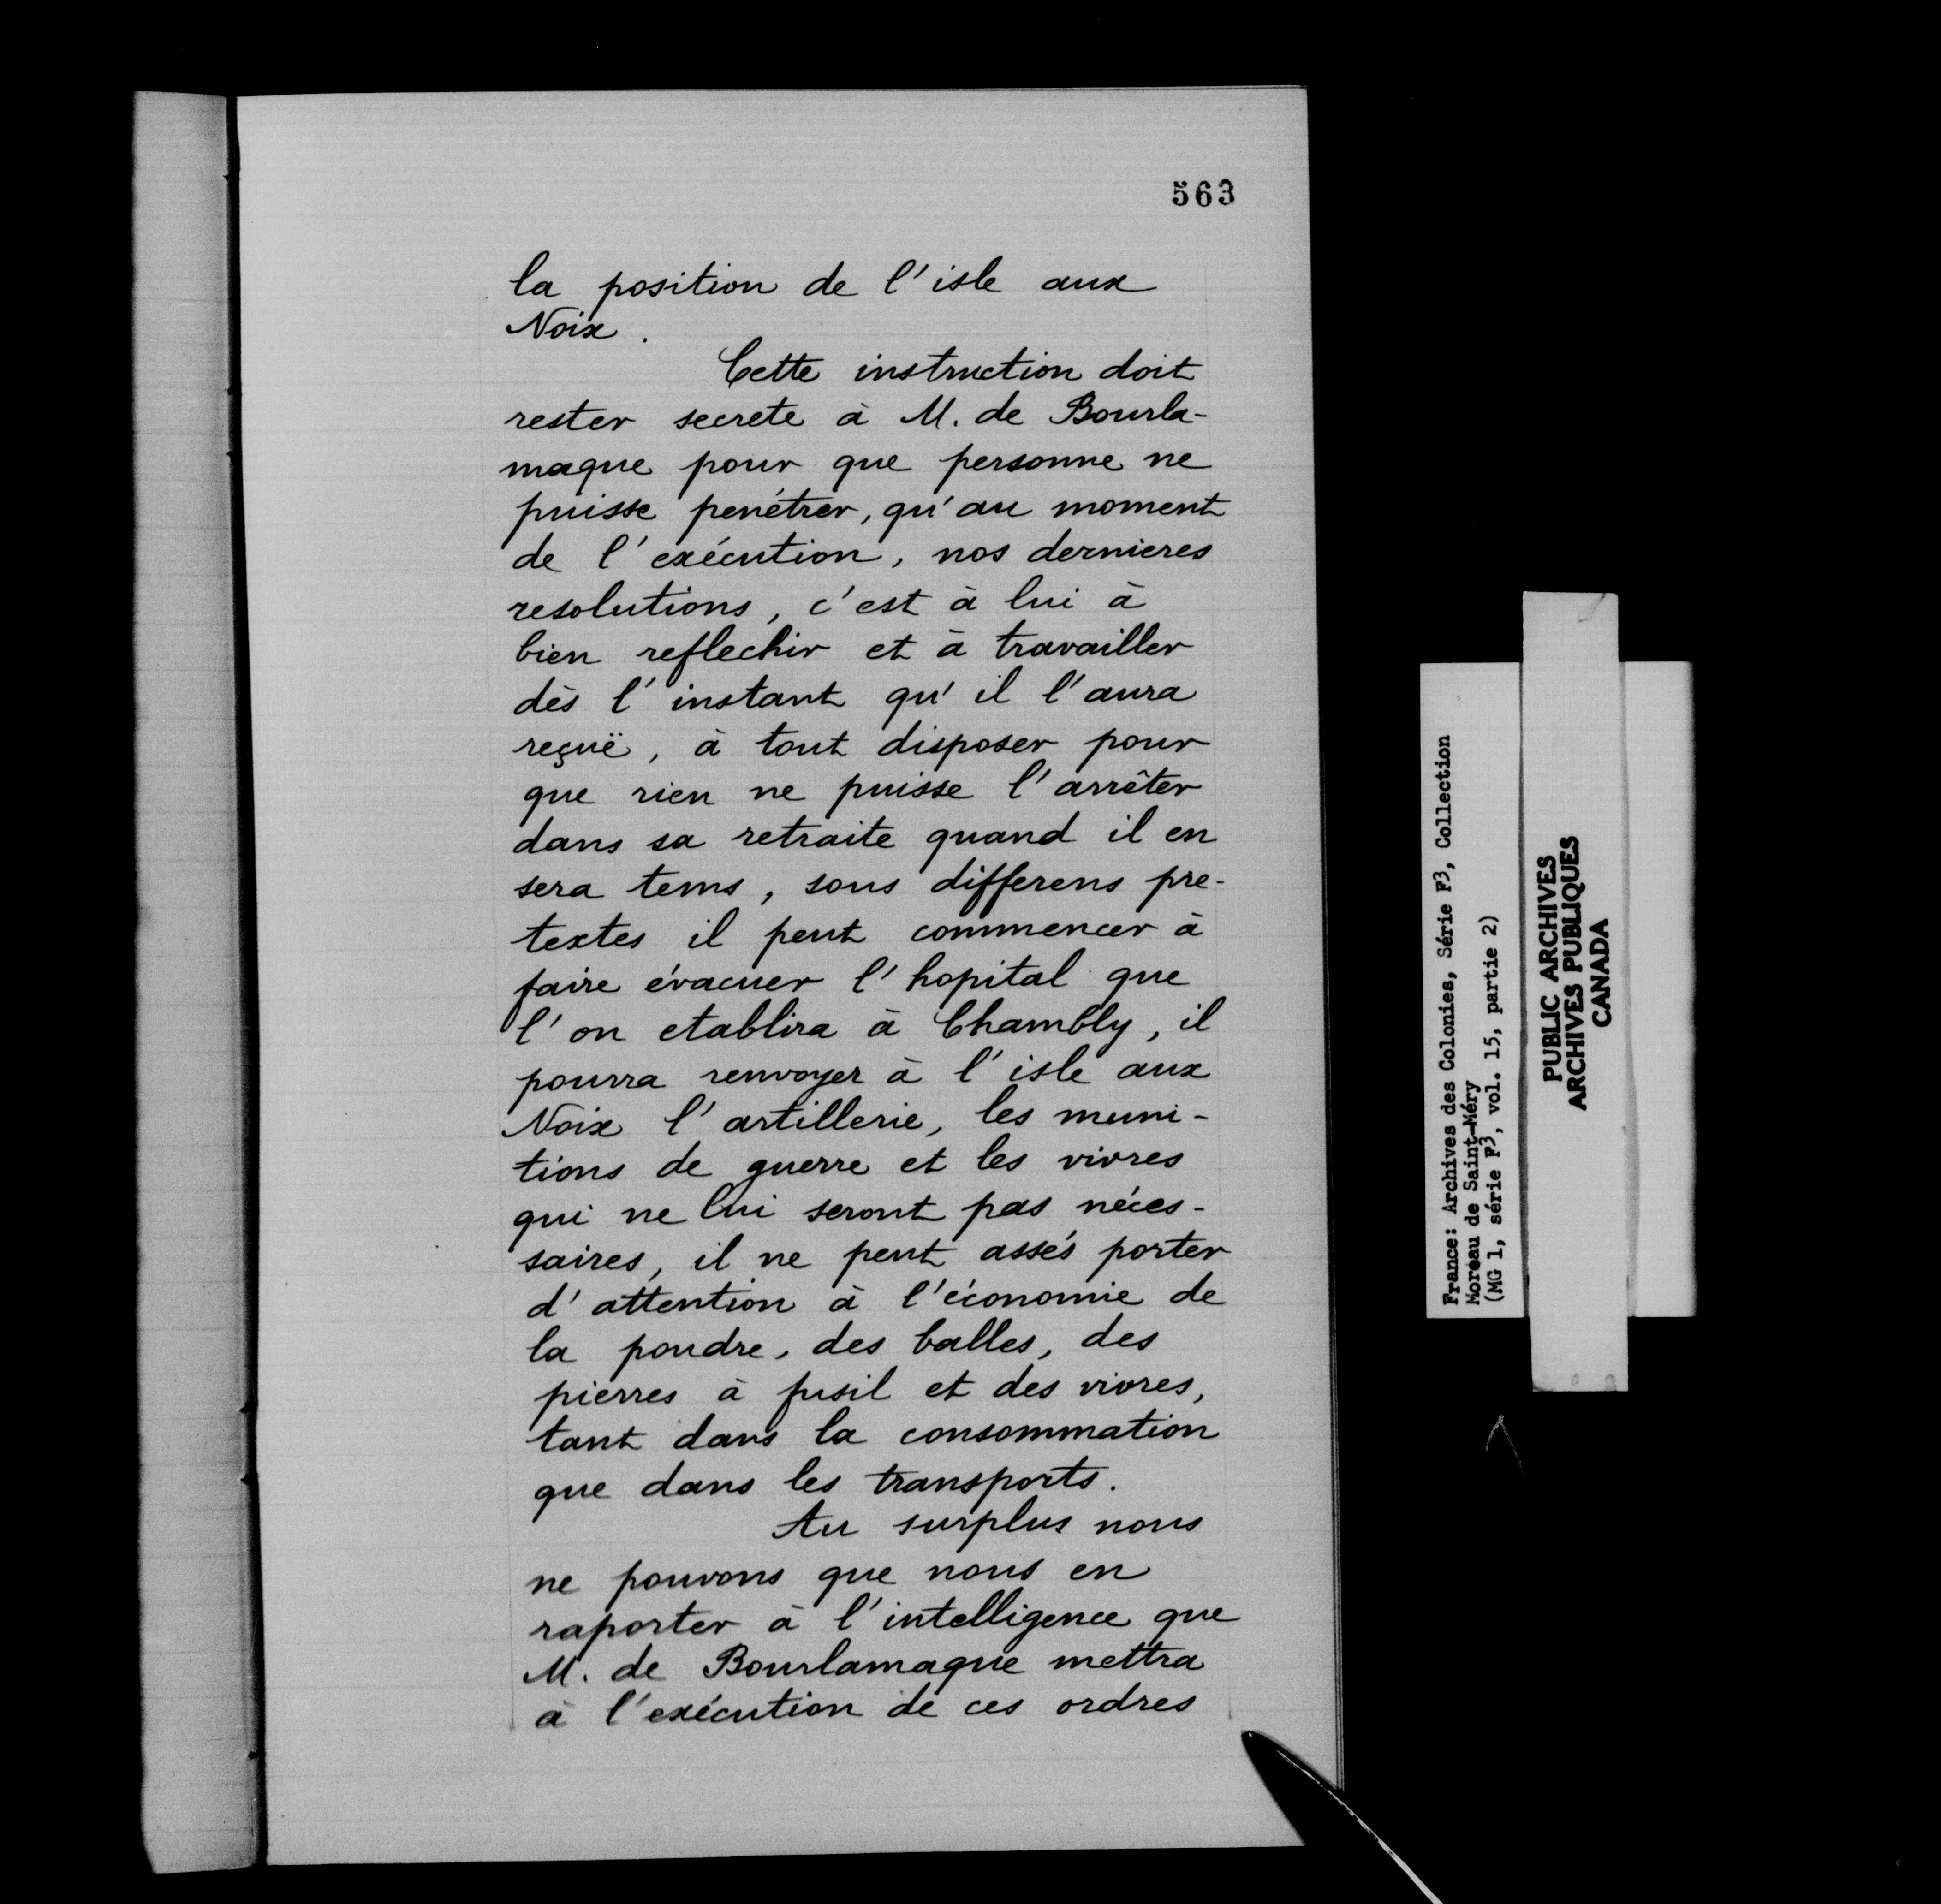 563
la position de l'isle aux
Noix.
Cette instruction doit
rester secrete à M. de Bourla-
maque pour que personne ne
puisse penétrer, qu'au moment
de l'exécution, nos dernieres
resolutions, c'est à lui à
bien reflechir et à travailler
dès l'instant qu'il l'aura
reçuë, à tout disposer pour
que rien ne puisse l'arrêter
dans sa retraite quand il en
sera tems, sous differens pre-
textes il peut commencer à
faire évacuer l'hopital que
l'on etablira à Chambly, il
pourra renvoyer à l'isle aux
Noix l'artillerie, les muni-
tions de guerre et les vivres
qui ne lui seront pas néces-
saires, il ne peut assés porter
d'attention à l'économie de
la poudre, des balles, des
pierres à fusil et des vivres,
tant dans la consommation
que dans les transports.
Au surplus nous
ne pouvons que nous en
raporter à l'intelligence que
M. de Bourlamaque mettra
à l'exécution de ces ordres
France: Archives des Colonies, Série F3, Collection
Moreau de Saint-Méry
(MG 1, série F3, vol. 15, partie 2)
PUBLIC ARCHIVES
ARCHIVES PUBLIQUES
CANADA